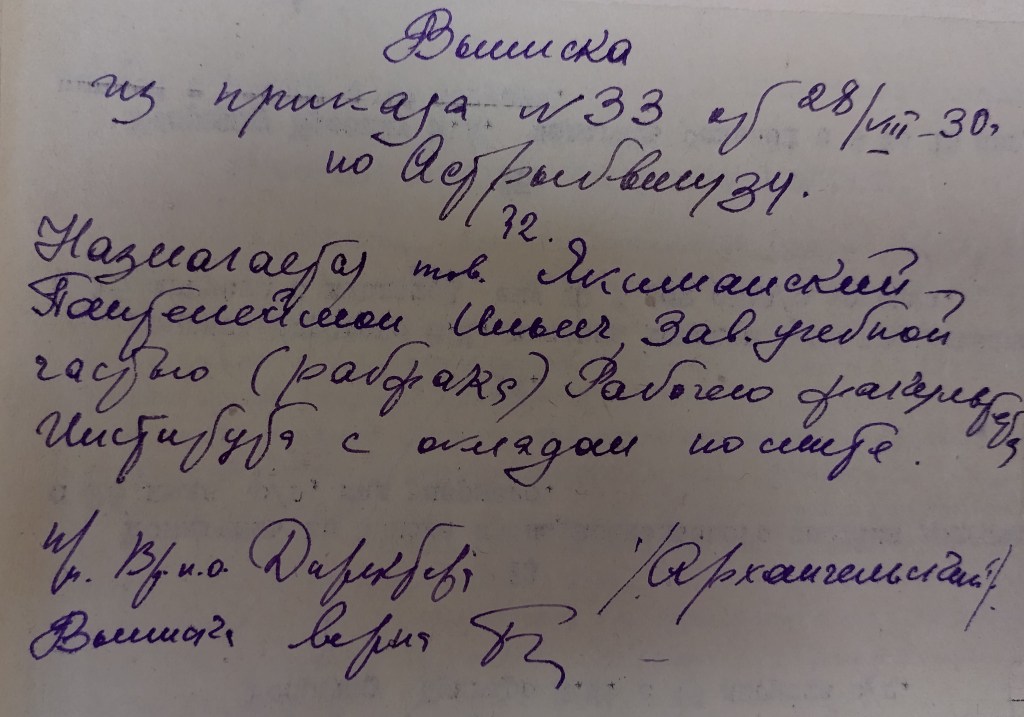 Выписка
из приказа № 33 от 28/VIII-30г
по Астрыбвтузу.
32.
Назначается тов. Якиманский
Пантелеймон Ильич, Зав. учебной
частью (рабфака) Рабочего факультета
Института с окладом по смете.
п/п. Вр.и.о. Директора /Архангельский/.
Выписка верна